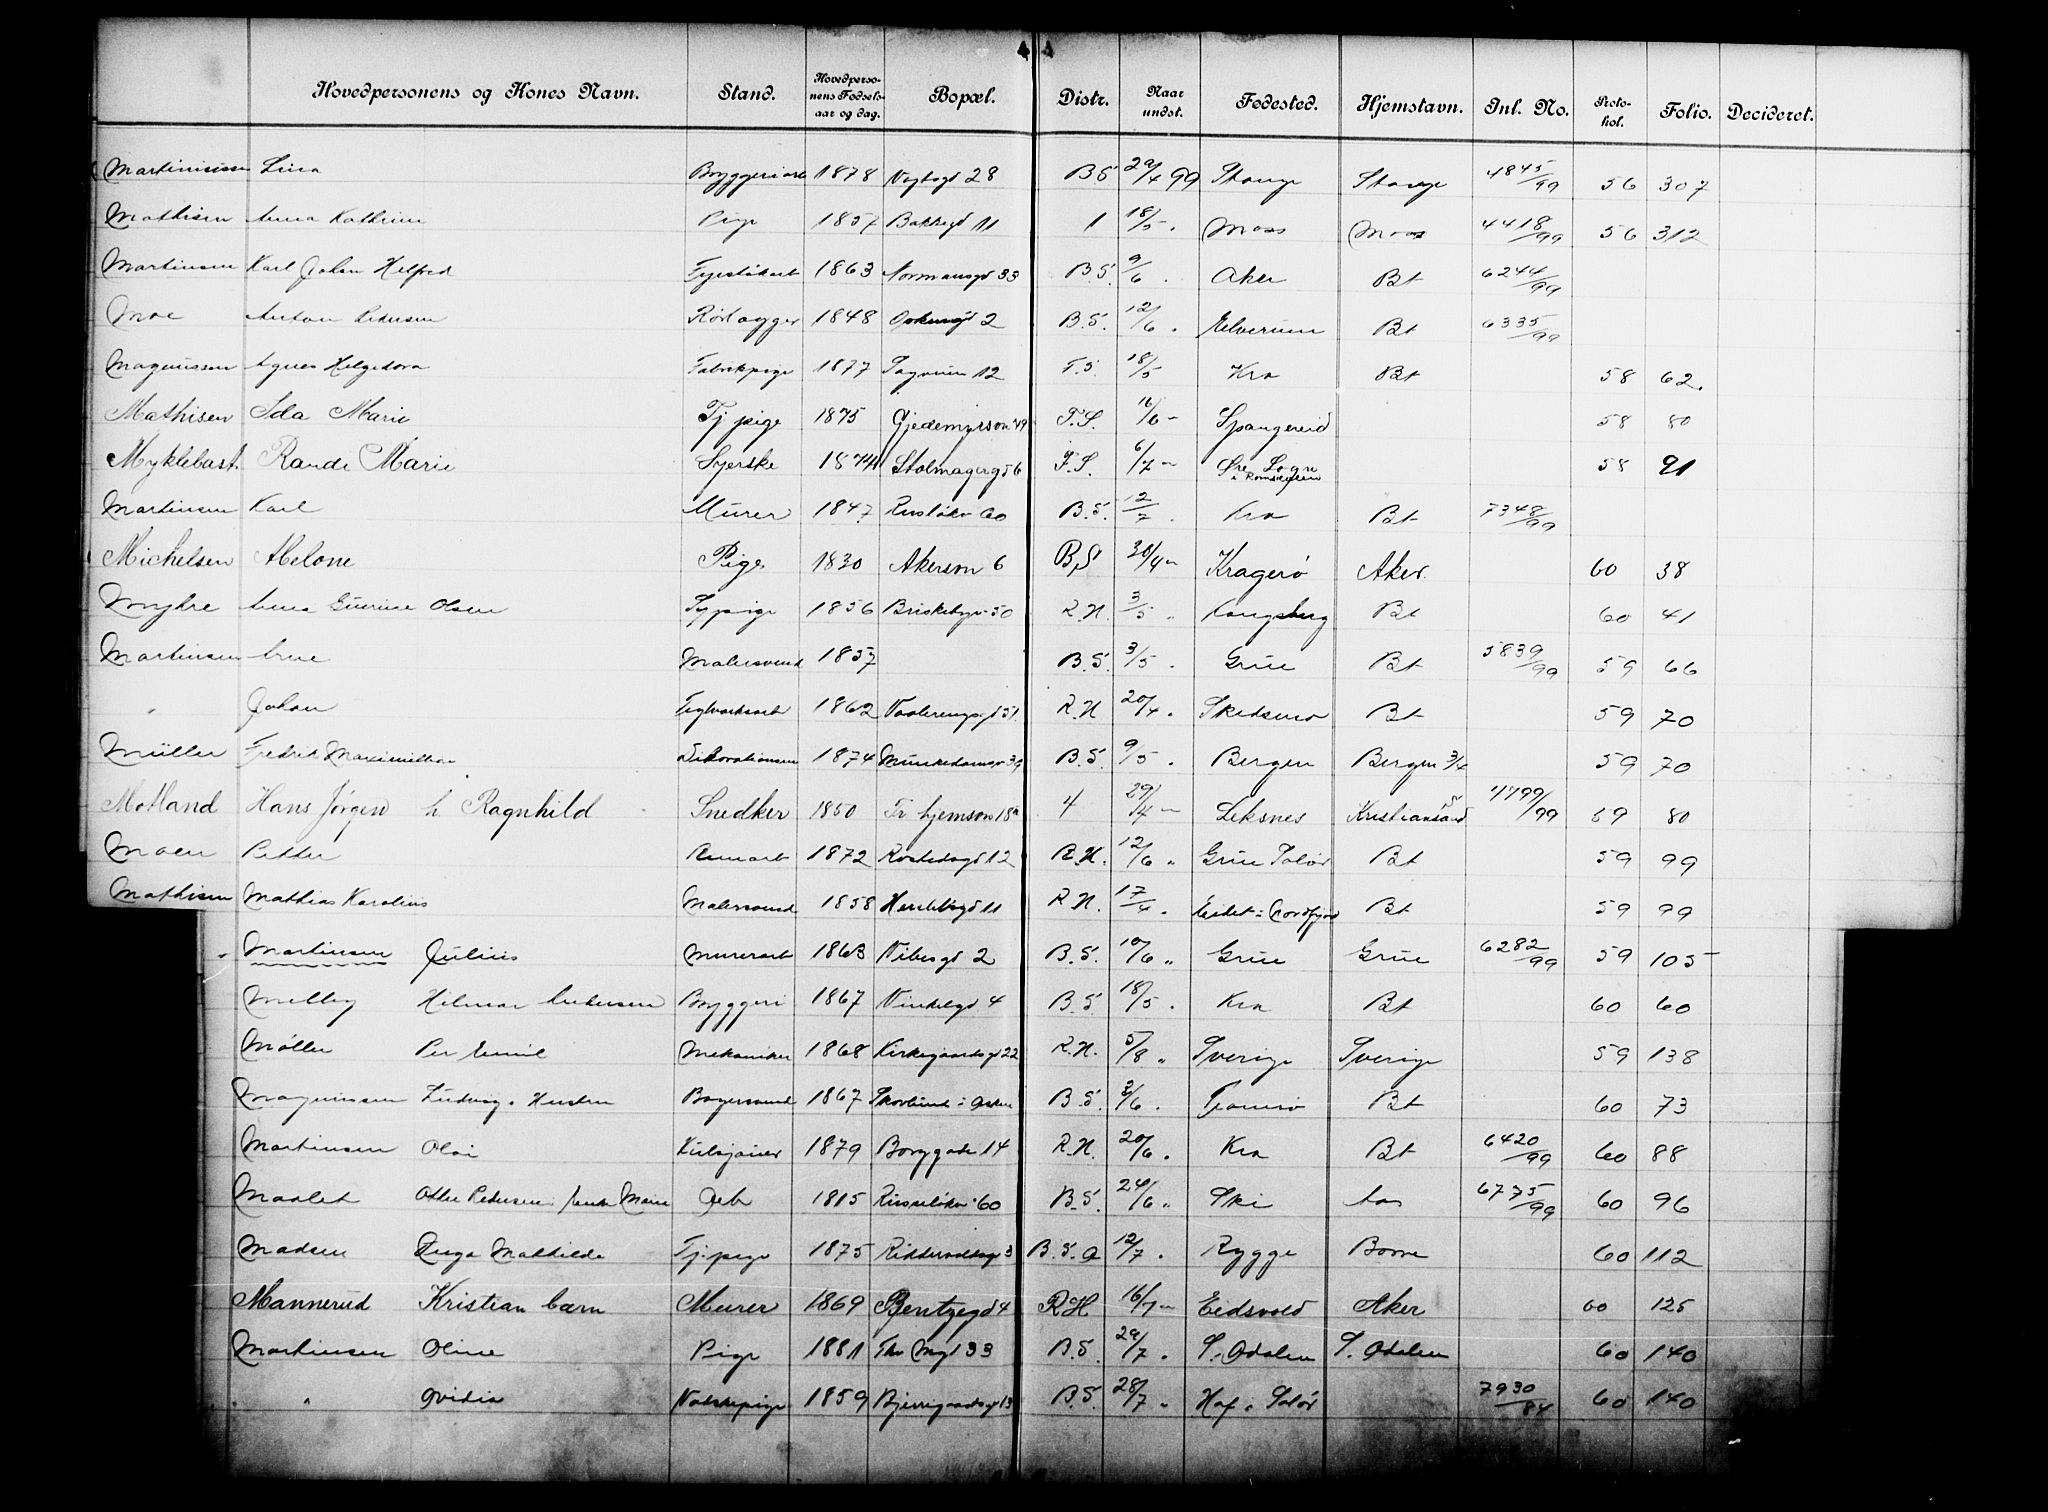 Hovedpersonens og Kones Navn. Stand. Hovedpersonens Fødselsaar og dag. Bopæl. Distr. Naar undst. Fødested. Hjemstavn. Inl. No. Protokol. Folio. Decideret.
Martiniussen Lina Bryggeriarb 1878 Vogtsgd 28 B.S. 29/4 99 Stange Stange 4845/99 56 307
Mathisen Anna Kathrine Pige 1857 Bakkegd 11 1 18/5 . Moss Moss 4418/99 56 312
Martinsen Karl Johan Helfred 1863 Normansgd 33 B.S. 9/6 . Aker Bt 6244/99
Moe Anton Pedersen Rørlægger 1848 2 B.S. 12/6 . Elverum Bt 6335/99
Magnussen Agnes Helgedora Fabrikpige 1877 12 F.S. 18/5 Kra Bt 58 62.
Mathisen Ida Marie Tj pige 1875 Gjedemyrsvn 49 F.S. 16/6 - Spangereid 58 80
Myklebast Rande Marie Syerske 1874 Stolmagergd 6 F.S. 6/7 - Øre Sogn i Romsdalen 58 91
Martinsen Karl Murer 1847 Rusløkv 60 B.S. 12/7 . Kra Bt 7348/99
Michelsen Abelone Pige 1830 Akersvn 6 B.S 30/4 - Kragerø Aker 60 38
Myhre Anna Gurine Olsen Tj pige 1856 Briskebyv 50 R.H. 3/5 „ Kongsberg Bt 60 41
Martinsen Arne Malersvend 1857 B.S. 3/5 . Grue Bt 5839/99 59 66
„ Johan Teglverksarb 1862 Vaalerengsgd 51 R.H 20/4 . Skedsmo Bt 59 70
Müller Fredrik Maximilian Dekorationsm 1874 Munkedamsv 39 B.S. 9/5 . Bergen Bergen 3/4 59 70
Motland Hans Jørgen h Ragnhild Snedker 1850 Fr. hjemsvn 18a 4 29/4 - Leksnes Kristiansand S 4799/99 59 80
Moen Petter 1872 Rostedsgd 12 R.H. 12/6 „ Grue Solør Bt 59 99
Mathisen Mathias Karolius Malersvend 1858 11 R.H. 17/4 . Eidet i Nordfjord Bt 59 99
„ Martinsen Julius Murerarb 1863 Vibesgd 2 B.S. 10/6 „ Grue Grue 6282/99 59 105
Melby Hilmar Andersen Bryggeri 1867 Vinkelgd 4 B.S. 18/5 . Kra Bt 60 60
Møller Per Emil Mekaniker 1868 Kirkegaardsgd 22 R.H. 5/8 „ Sverige Sverige 59 138
Magnussen Ludvig . Hustru Bagersvend 1867 Skovlund i Asker B.S. 3/6 . Tromsø Bt 60 73
Martinsen Olai Kulkjører 1879 Borggade 14 R.H. 20/6 . Kra Bt 6420/99 60 88
Maalet Otter Pedersen Enke Marie Arb 1815 Rusløkv 60 B.S. 24/6 „ Ski Aas 6775/99 60 96
Madsen Inga Mathilde Tj. pige 1875 Riddervoldsgd 3 B.S. a 12/7 . Rygge Borre 60 112
Mannerud Kristian barn Murer 1869 Bentzegd 4 R.H. 16/7 - Eidsvold Aker 60 125
Martinsen Oline Pige 1881 Th Mgd 33 B.S. 29/7 . S. Odalen S. Odalen 60 140
„ Ovidia Vaskepige 1859 Bjerregaardsgd 13 B.S. 28/7 „ Hof i Solør 7930/84 60 140